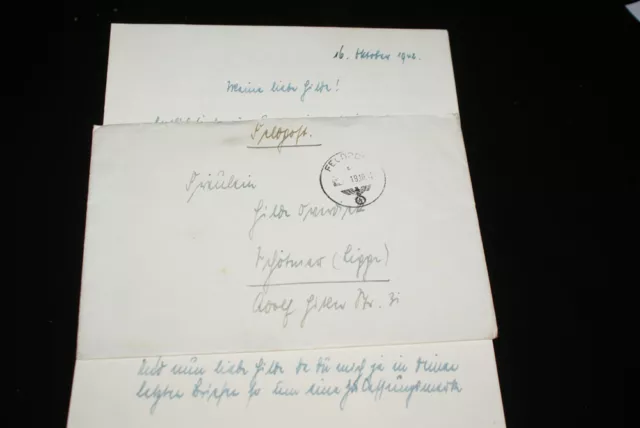 16. Oktober 1942.
Meine liebe Hilde!
Feldpost.
FELDPOST
Fräulein
Hilde
Schötmar (Lippe)
Adolf Hitler Str. 31
Und nun liebe Hilde da Du mich ja in Deinem
letzten Briefe so um eine